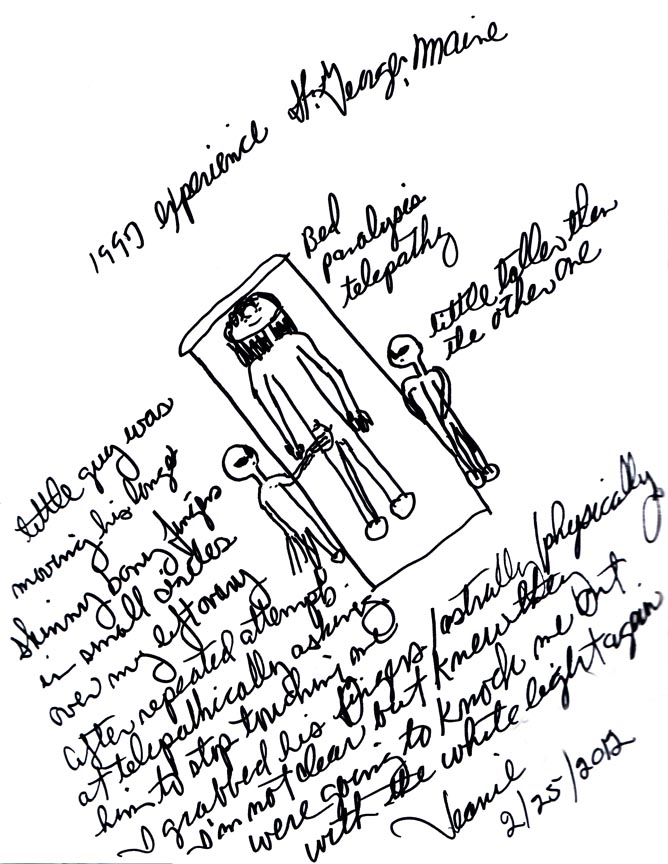 1997 experience St. George, Maine
Bed
paralysis
telepathy
little taller than
the other one
little guy was
moving his long
skinny bony fingers
in small circles
over my left ovary
after repeated attempts
at telepathically asking
him to stop touching me
I grabbed his fingers/astrally/physically
I'm not clear but knew they
were going to knock me out
with the white light again
Jeanie
2/25/2012